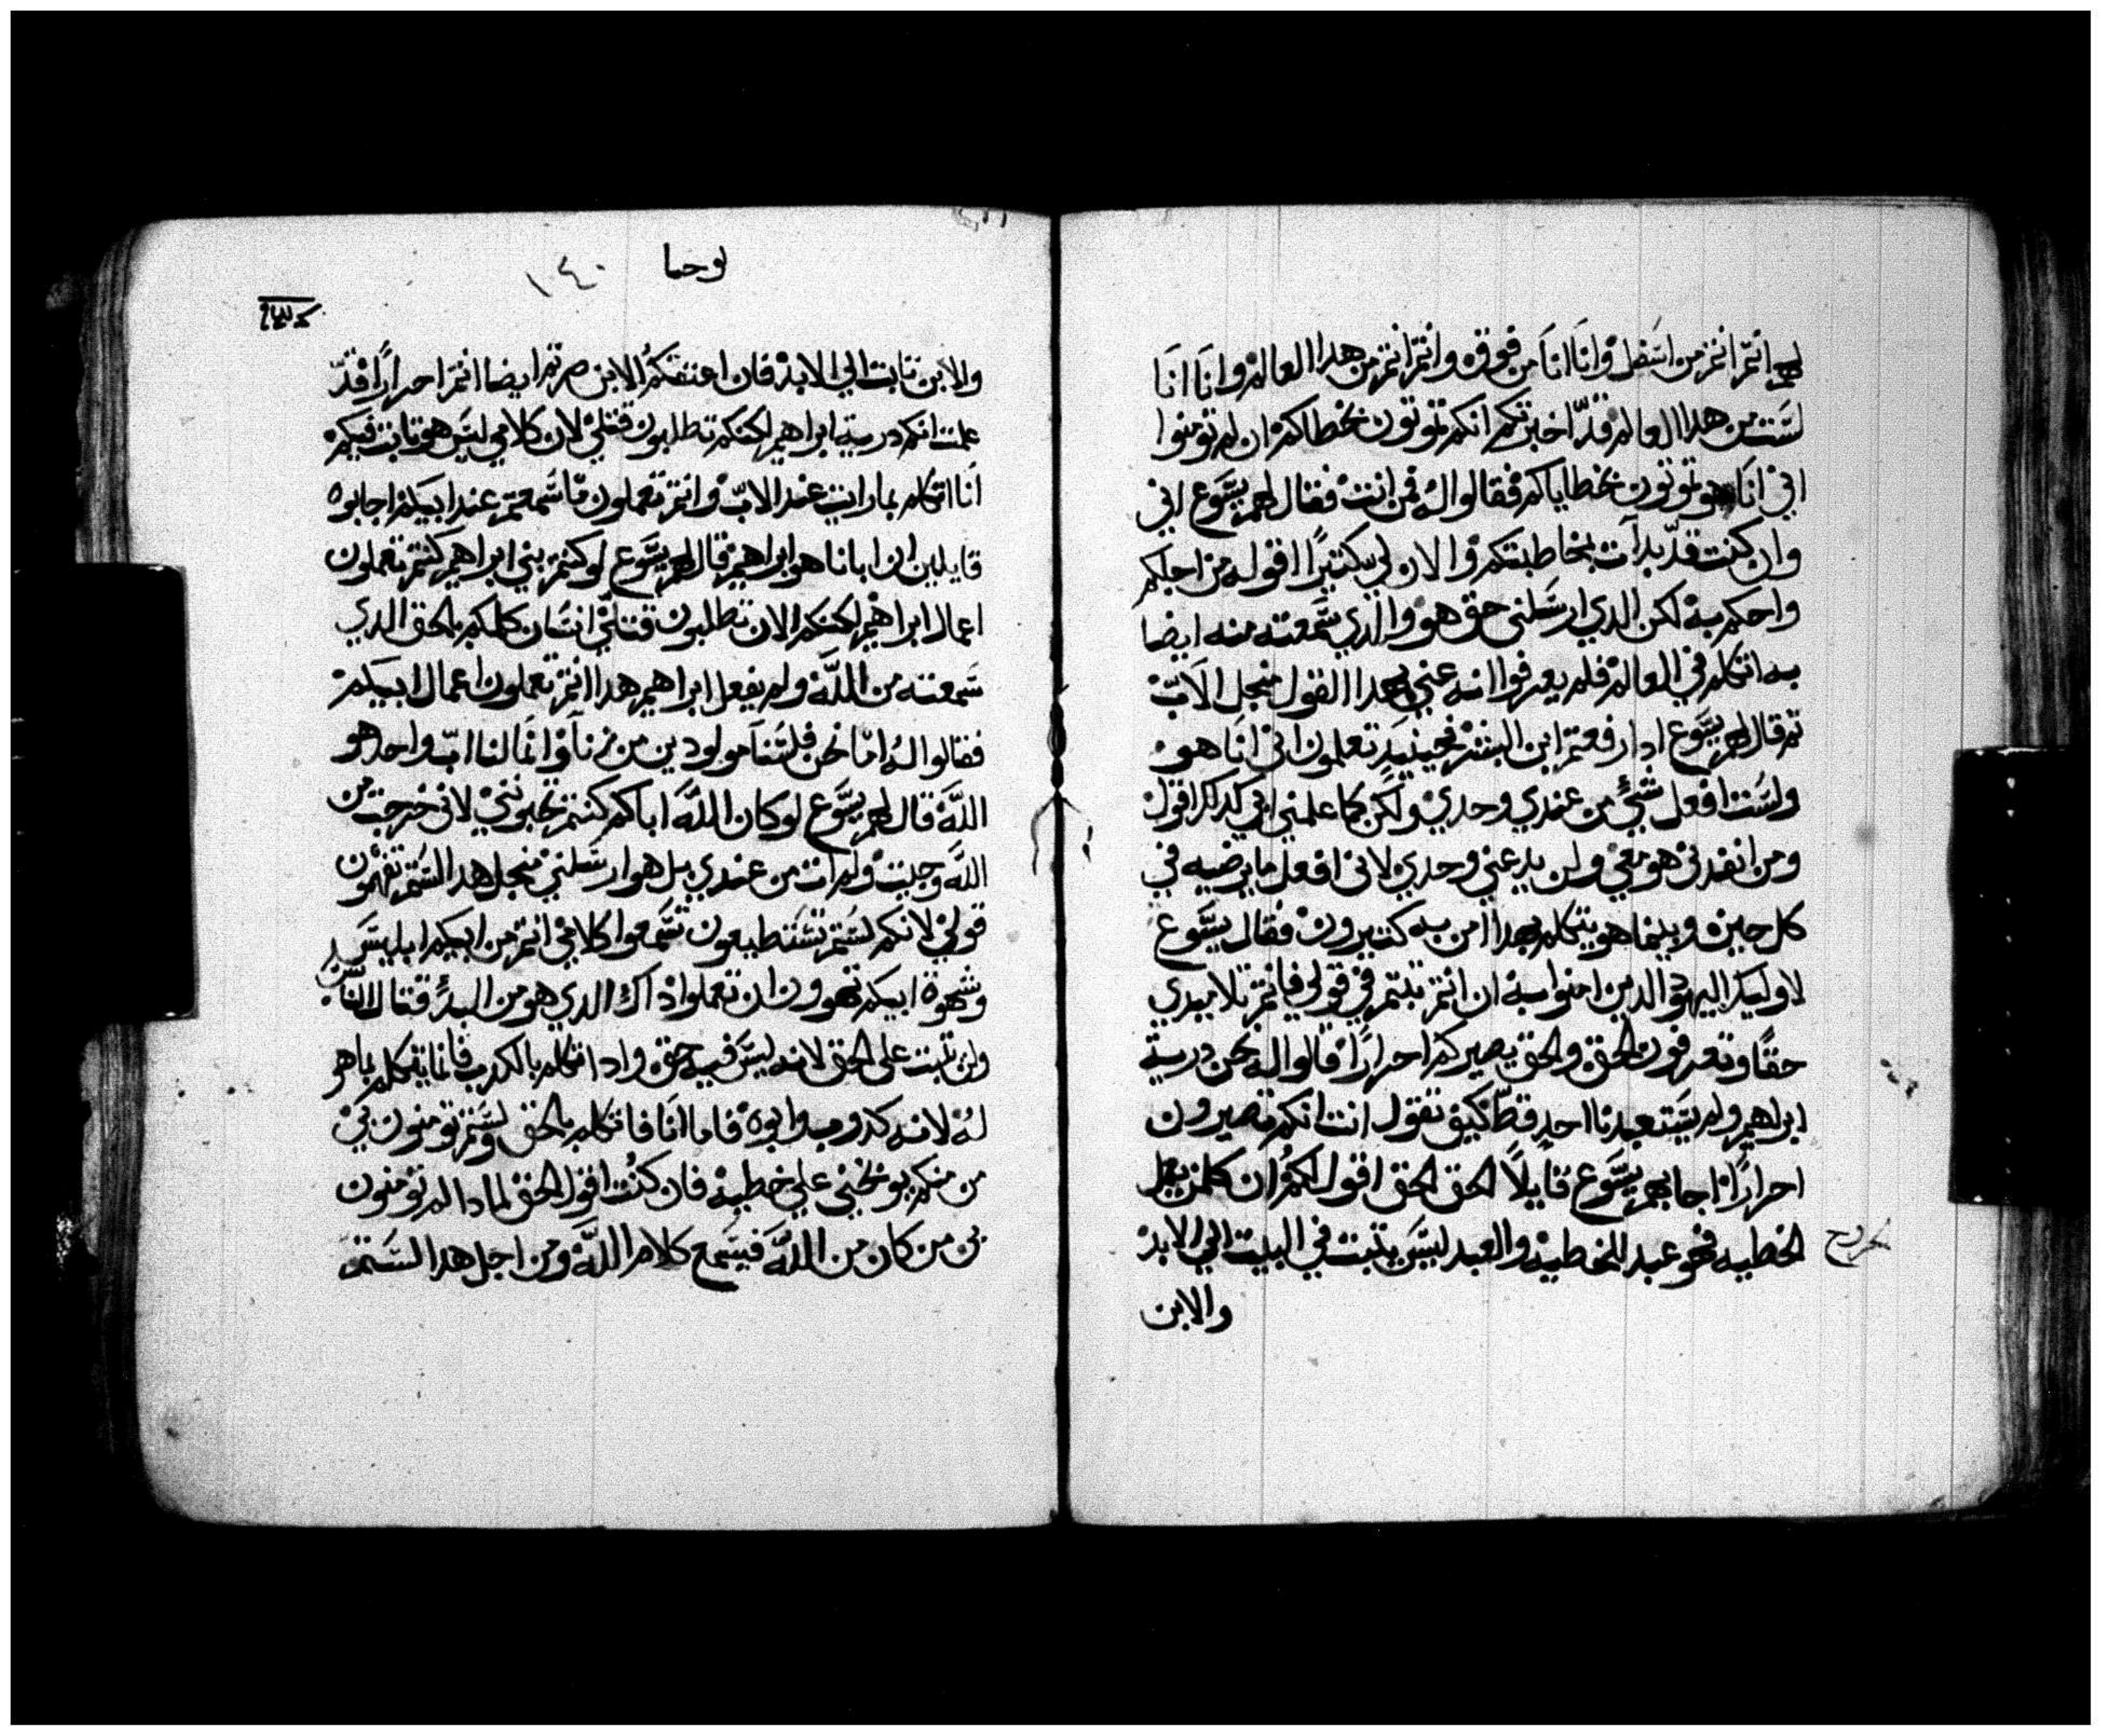 لهم انتم انتم من اسفل وانا انا من فوق وانتم انتم من هدا العالم وانا انا
لست من هدا العالم قد اخبرتكم انكم تموتون بخطاكم ان لم تومنوا
اني انا هو تموتون بخطاياكم فقالوا له فمن انت فقال لهم يسوع اني
وان كنت قد بدات بخاطبتكم والان لي كتيرا اقوله من اجلكم
واحكم به لكن الدي ارسلني حق هو والدي سمعته منه ايضا
به اتكلم في العالم فلم يعرفوا انه عني بهدا القول منجل الاب
تم قال لهم يسوع ادا رفعتم ابن البشر فحينيد تعلمون اني انا هو
ولست افعل شئ من عندي وحدي ولكن كما علمني ابي كدلك اقول
ومن انفدني هو معي ولن يدعني وحدي لاني افعل ما يرضيه في
كل حين وبينما هو يتكلم بهدا امن به كتيرون فقال يسوع
لاوليك اليهود الدين امنوا به ان انتم تبتم في قولي فانتم تلاميدي
حقا وتعرفون الحق والحق يصيركم احرارا قالوا له نحن درية
ابراهيم ولم يستعبدنا احد قط كيف تقول انت انكم تصيرون
احرارا اجابهم يسوع قايلا الحق الحق اقول لكم ان كلمن يعمل
الخطيه فهو عبد للخطيه والعبد ليس يتبت في البيت الي الابد
والابن
يوحنا
١٤٠
والابن تابت الي الابد فان اعتقكم الابن صرتم ايضا انتم احرارا قد
علمت انكم درية ابراهيم لكنكم تطلبون قتلي لان كلامي ليس هو تابت فيكم
انا اتكلم بما رايت عند الاب وانتم تعملون ما سمعتم عند ابيكم اجابوه
قايلين ان ابانا هو ابراهيم قال لهم يسوع لو كنتم بني ابراهيم كنتم تعملون
اعمال ابراهيم لكنكم الان تطلبون قتلي انسان كلمكم بالحق الدي
سمعته من الله ولم يفعل ابراهيم هدا انتم تعملون اعمال ابيكم
فقالوا له اما نحن فلسنا مولودين من زنا وانما لنا اب واحد هو
الله قال لهم يسوع لو كان الله اباكم كنتم تحبونني لاني خرجت من
الله وجيت ولم ات من عندي بل هو ارسلني منجل هدا لستم تفهمون
قولي لانكم لستم تستطيعون تسمعوا كلامي انتم من ابيكم ابليس
وشهوة ابيكم تهوون ان تعملوا داك الدي هو من البدئ قتال الناس
ولن تبت على الحق لانه ليس فيه حق وادا تكلم بالكدب فانما يتكلم بما هو
له لانه كدوب وابوه فاما انا فاتكلم بالحق ولستم تومنون بي
من منكم يوبخني علي خطيه فان كنت اقول الحق لمادا لم تومنون
بي من كان من الله فيسمع كلام الله ومن اجل هدا لستم